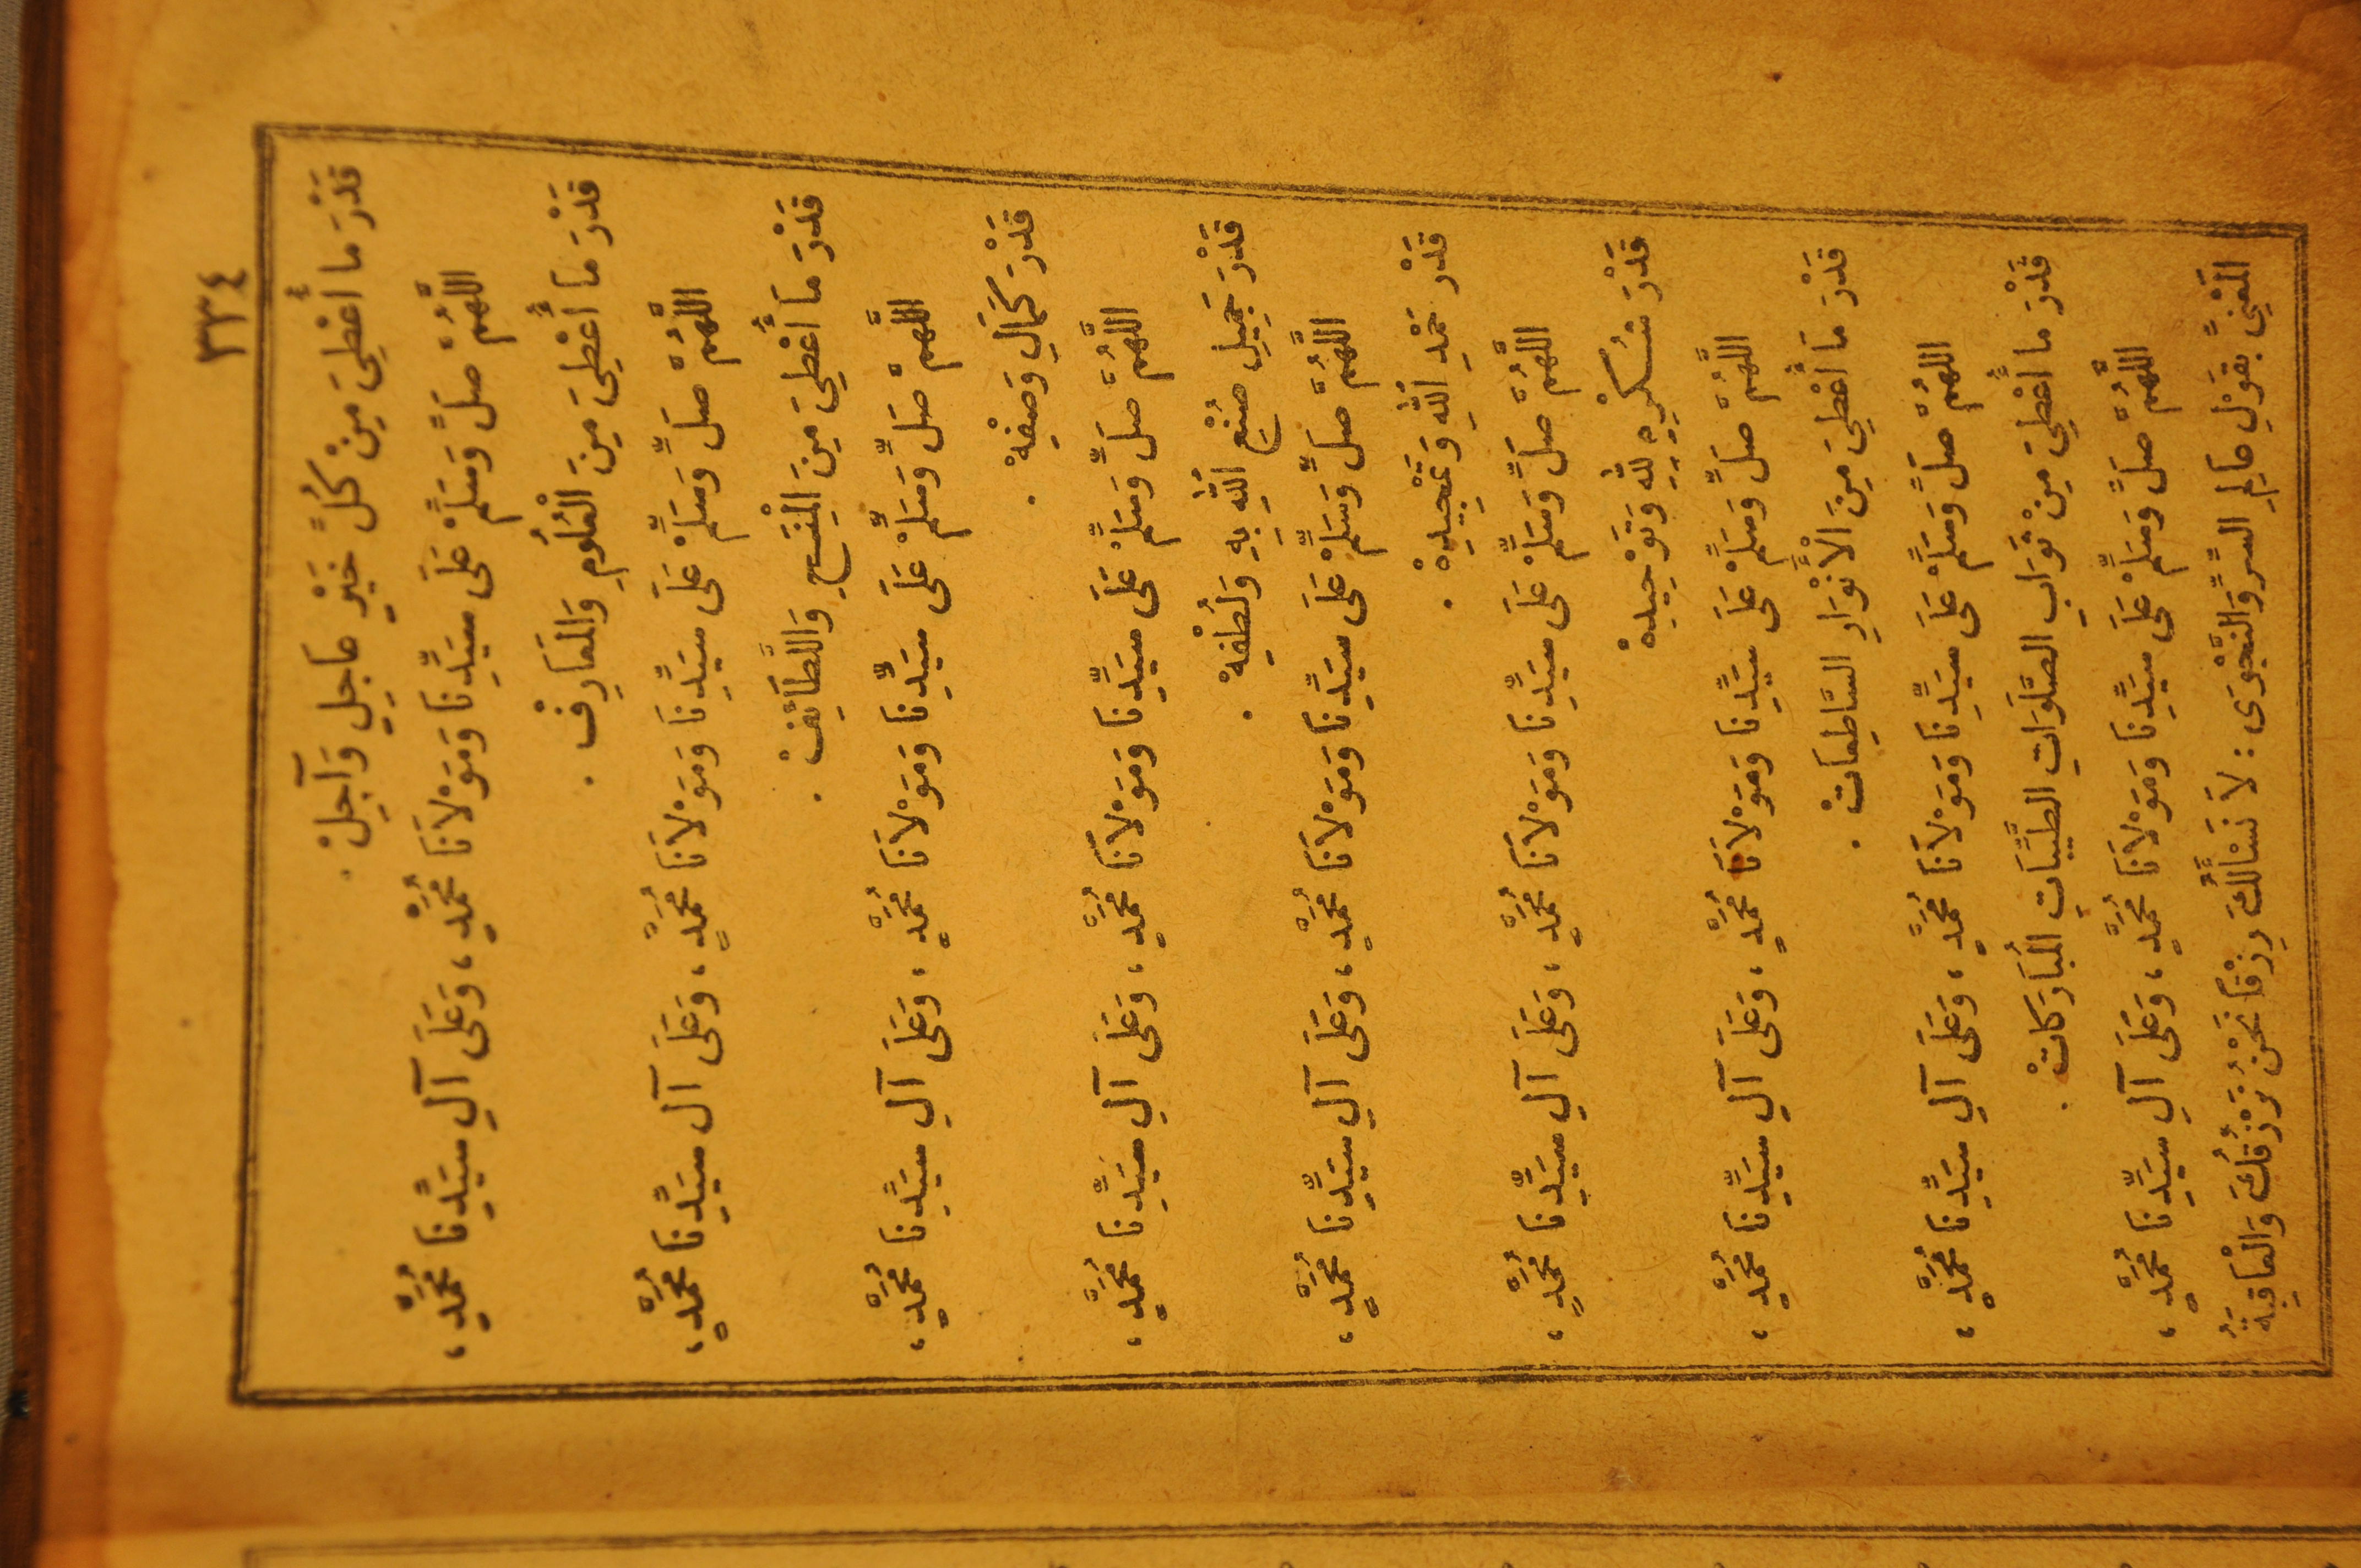 ٣٣٤
قَدْرَ مَا أُعْطِيَ مِنْ كُلِّ خَيْرٍ عَاجِلٍ وَآجِلْ .
اللَّهُمَّ صَلِّ وَسَلِّمْ عَلَى سَيِّدِنَا وَمَوْلَانَا مُحَمَّدٍ ، وَعَلَى آلِ سَيِّدِنَا مُحَمَّدٍ ،
قَدْرَ مَا أُعْطِيَ مِنَ الْعُلُومِ وَالْمَعَارِفْ .
اللَّهُمَّ صَلِّ وَسَلِّمْ عَلَى سَيِّدِنَا وَمَوْلَانَا مُحَمَّدٍ ، وَعَلَى آلِ سَيِّدِنَا مُحَمَّدٍ ،
قَدْرَ مَا أُعْطِيَ مِنَ الْمِنَحِ وَاللَّطَائِفْ .
اللَّهُمَّ صَلِّ وَسَلِّمْ عَلَى سَيِّدِنَا وَمَوْلَانَا مُحَمَّدٍ ، وَعَلَى آلِ سَيِّدِنَا مُحَمَّدٍ ،
قَدْرَ كَمَالِ وَصْفِهْ .
اللَّهُمَّ صَلِّ وَسَلِّمْ عَلَى سَيِّدِنَا وَمَوْلَانَا مُحَمَّدٍ ، وَعَلَى آلِ سَيِّدِنَا مُحَمَّدٍ ،
قَدْرَ جَمِيلِ صُنْعِ اللهِ بِهِ وَلُطْفِهْ .
اللَّهُمَّ صَلِّ وَسَلِّمْ عَلَى سَيِّدِنَا وَمَوْلَانَا مُحَمَّدٍ ، وَعَلَى آلِ سَيِّدِنَا مُحَمَّدٍ ،
قَدْرَ حَمْدِ اللهِ وَتَمْجِيدِهْ .
اللَّهُمَّ صَلِّ وَسَلِّمْ عَلَى سَيِّدِنَا وَمَوْلَانَا مُحَمَّدٍ ، وَعَلَى آلِ سَيِّدِنَا مُحَمَّدٍ ،
قَدْرَ شُكْرِهِ لِلهِ وَتَوْحِيدِهْ
اللَّهُمَّ صَلِّ وَسَلِّمْ عَلَى سَيِّدِنَا وَمَوْلَانَا مُحَمَّدٍ ، وَعَلَى آلِ سَيِّدِنَا مُحَمَّدٍ ،
قَدْرَ مَا أُعْطِيَ مِنَ الْأَنْوَارِ السَّاطِعَاتْ .
اللَّهُمَّ صَلِّ وَسَلِّمْ عَلَى سَيِّدِنَا وَمَوْلَانَا مُحَمَّدٍ ، وَعَلَى آلِ سَيِّدِنَا مُحَمَّدٍ ،
قَدْرَ مَا أُعْطِيَ مِنْ ثَوَابِ الصَّلَوَاتِ الطَّيِّبَاتِ الْمُبَارَكَاتْ .
اللَّهُمَّ صَلِّ وَسَلِّمْ عَلَى سَيِّدِنَا وَمَوْلَانَا مُحَمَّدٍ ، وَعَلَى آلِ سَيِّدِنَا مُحَمَّدٍ ،
الْمَعْنِيِّ بِقَوْلِ عَالِمِ السِّرِّ وَالنَّجْوَى : لَا نَسْأَلُكَ رِزْقًا نَحْنُ نَرْزُقُكَ وَالْعَاقِبَةُ